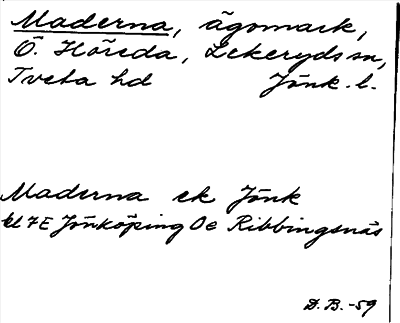 Maderna, ägomark,
Ö. Höreda, Lekeryds sn,
Tveta hd Jönk. l.
Maderna ek Jönk
bl 7E Jönköping 0e Ribbingsnäs
D.B.-59